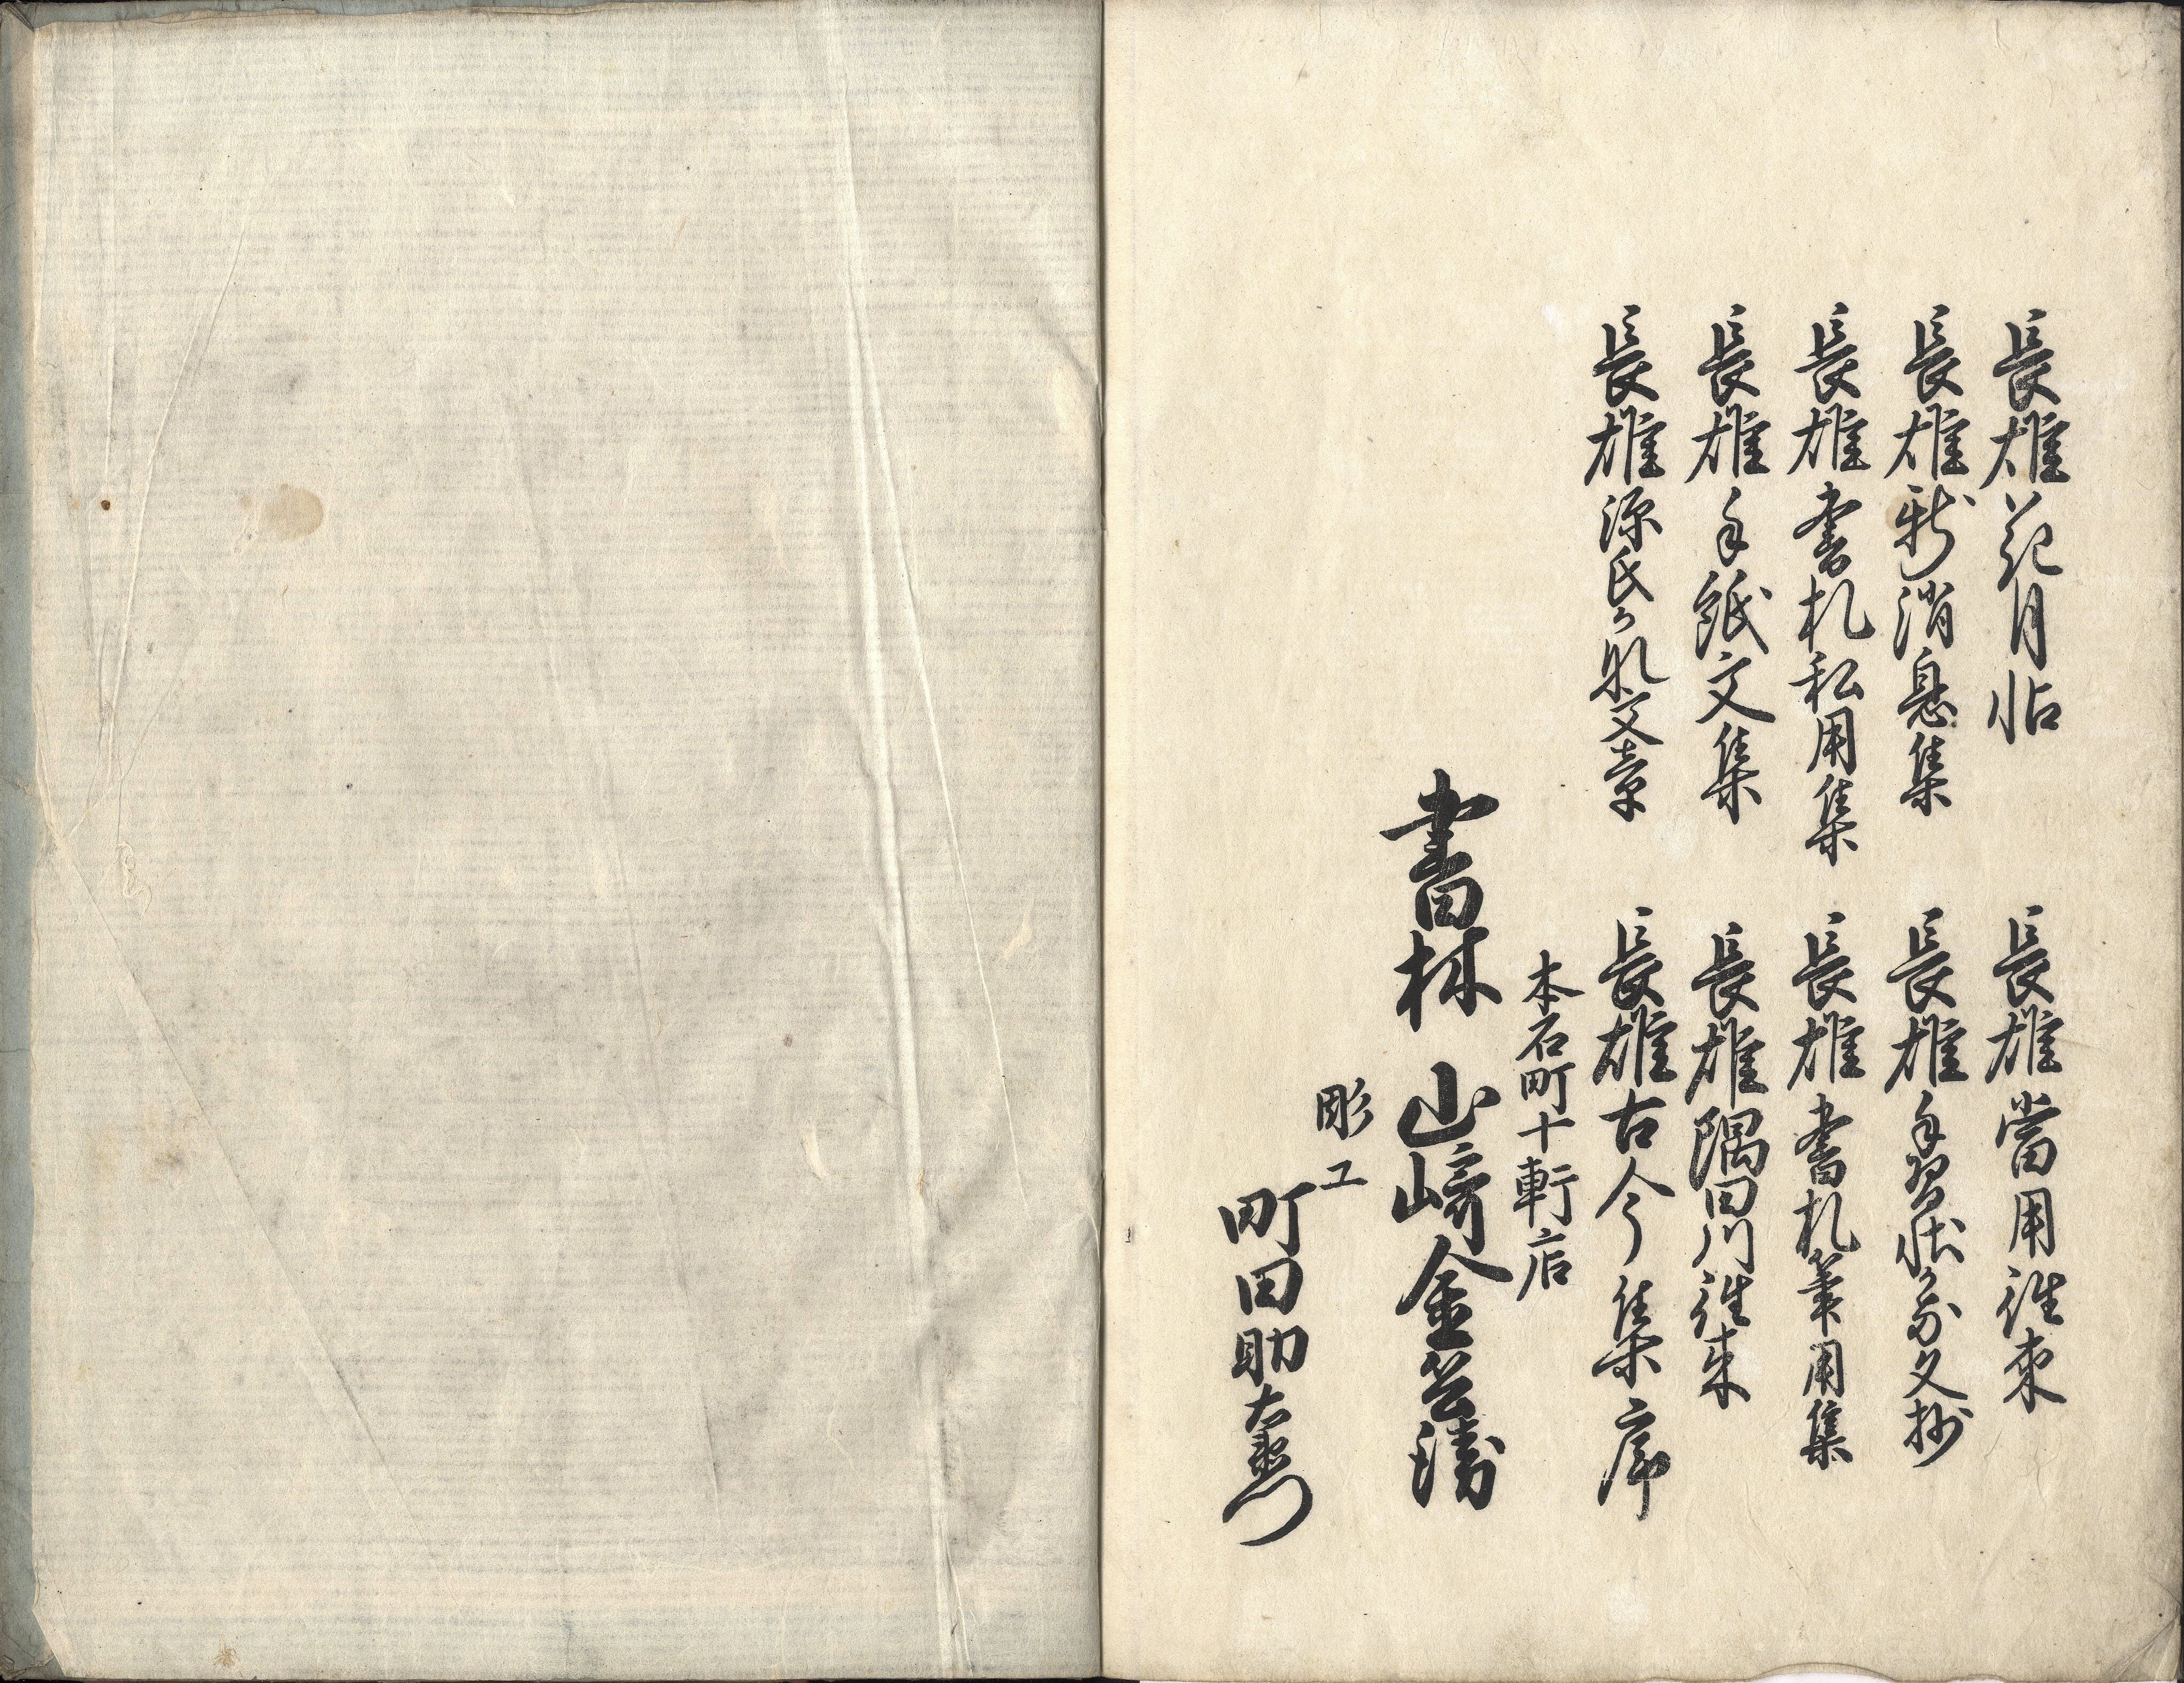 長雄花月帖
長雄當用往来
長雄新消息集
長雄手習状かな文抄
長雄書札私用集
長雄書札筆用集
長雄手紙文集
長雄隅田川往来
長雄源氏かな文章
長雄古今集序
本石町十軒店
書林 山﨑金兵衛
彫工
町田助右衛門